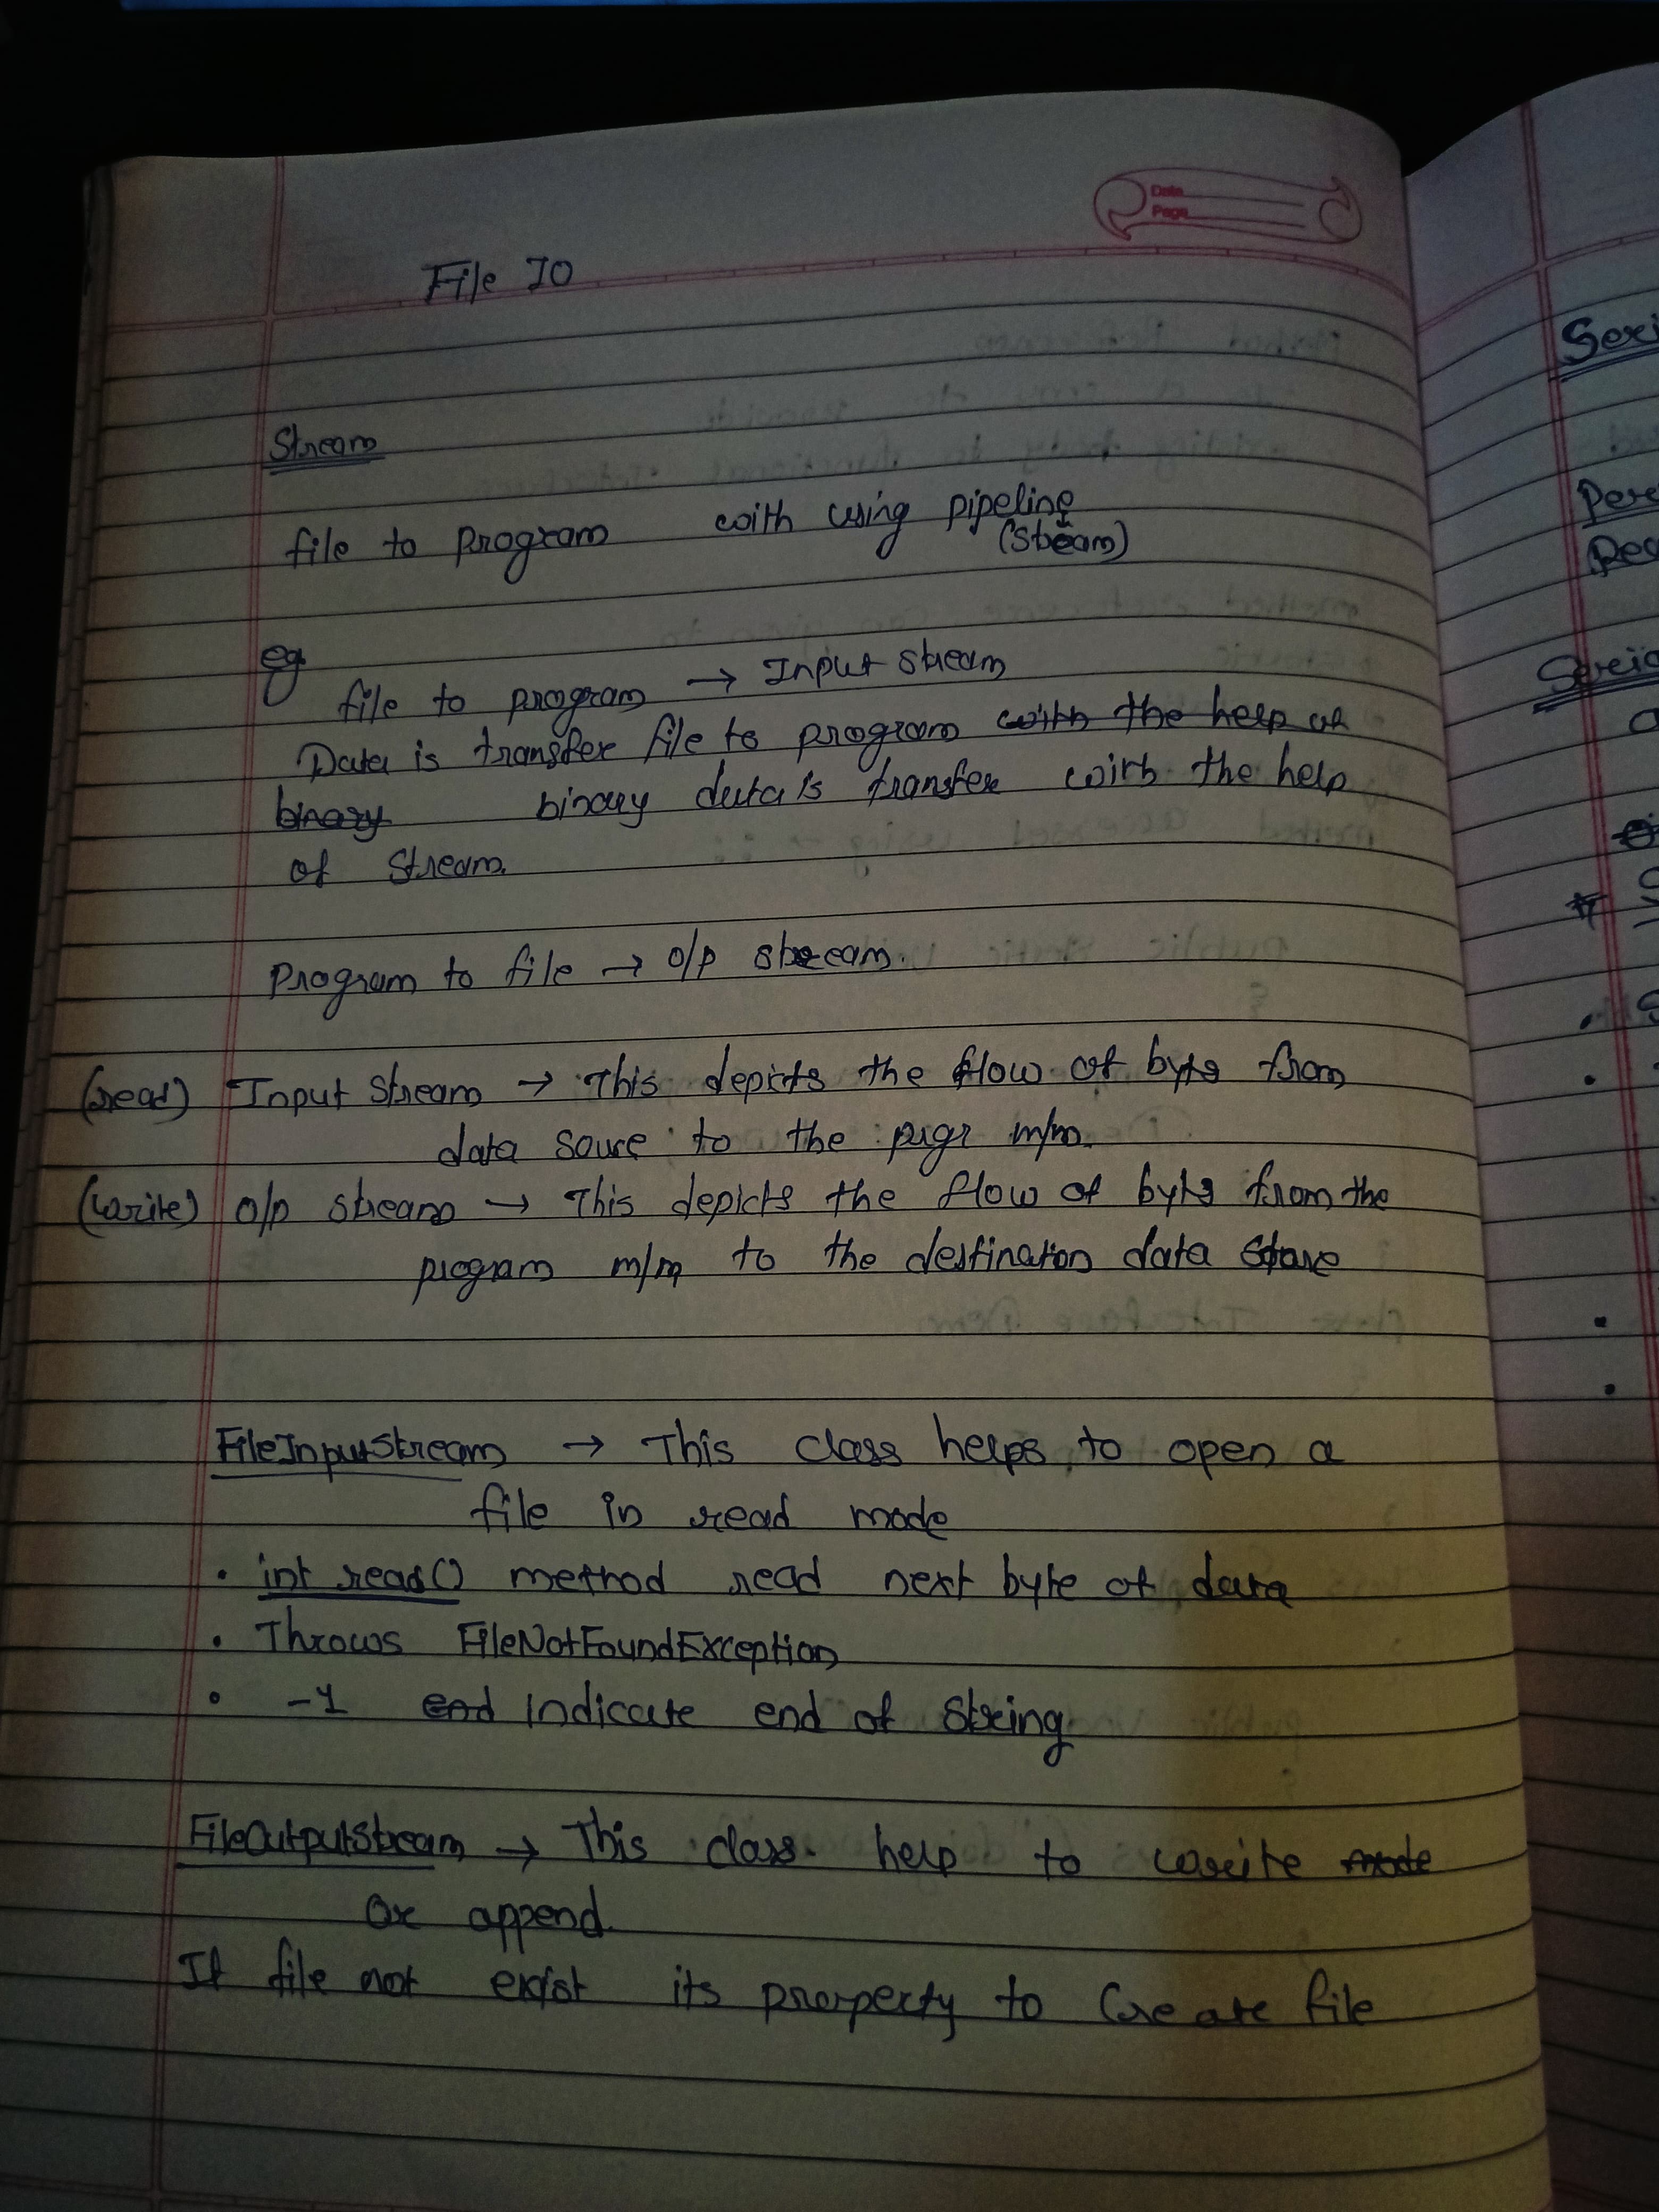 Date
Page
File IO
Stream
file to program with using pipeline
(Stream)
eg
file to program → Input stream
Data is transfer file to program with the help of
binary binary data is transfer with the help
of stream.
Program to file → o/p stream.
(read) Input stream → This depicts the flow of byts from
data sourc to the prgr m/m.
(write) o/p stream → This depicts the flow of byts from the
program m/m to the destination data store
FileInputStream → This class helps to open a
file in read mode
• int read() method read next byte of data
• Throws FileNotFoundException
• -1 end indicate end of string
FileOutputStream → This class help to write mode
Or append.
If file not exist its properxty to Create file
Seri
Pers